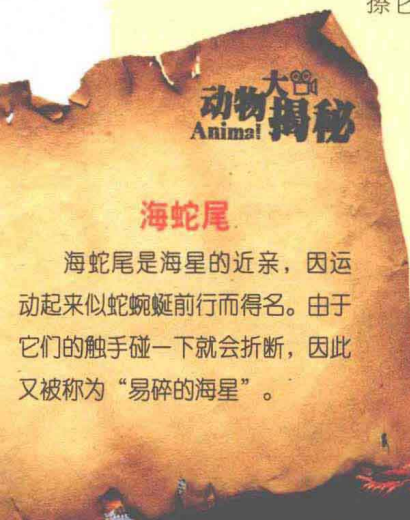 擦它
动物大揭秘
Animal
海蛇尾
海蛇尾是海星的近亲，因运
动起来似蛇蜿蜒前行而得名。由于
它们的触手碰一下就会折断，因此
又被称为“易碎的海星”。